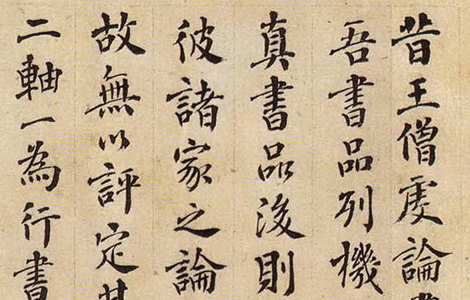 昔王僧虔論
吾書品列機
真書品後則
彼諸家之論
故無以評定其
二軸一為行書